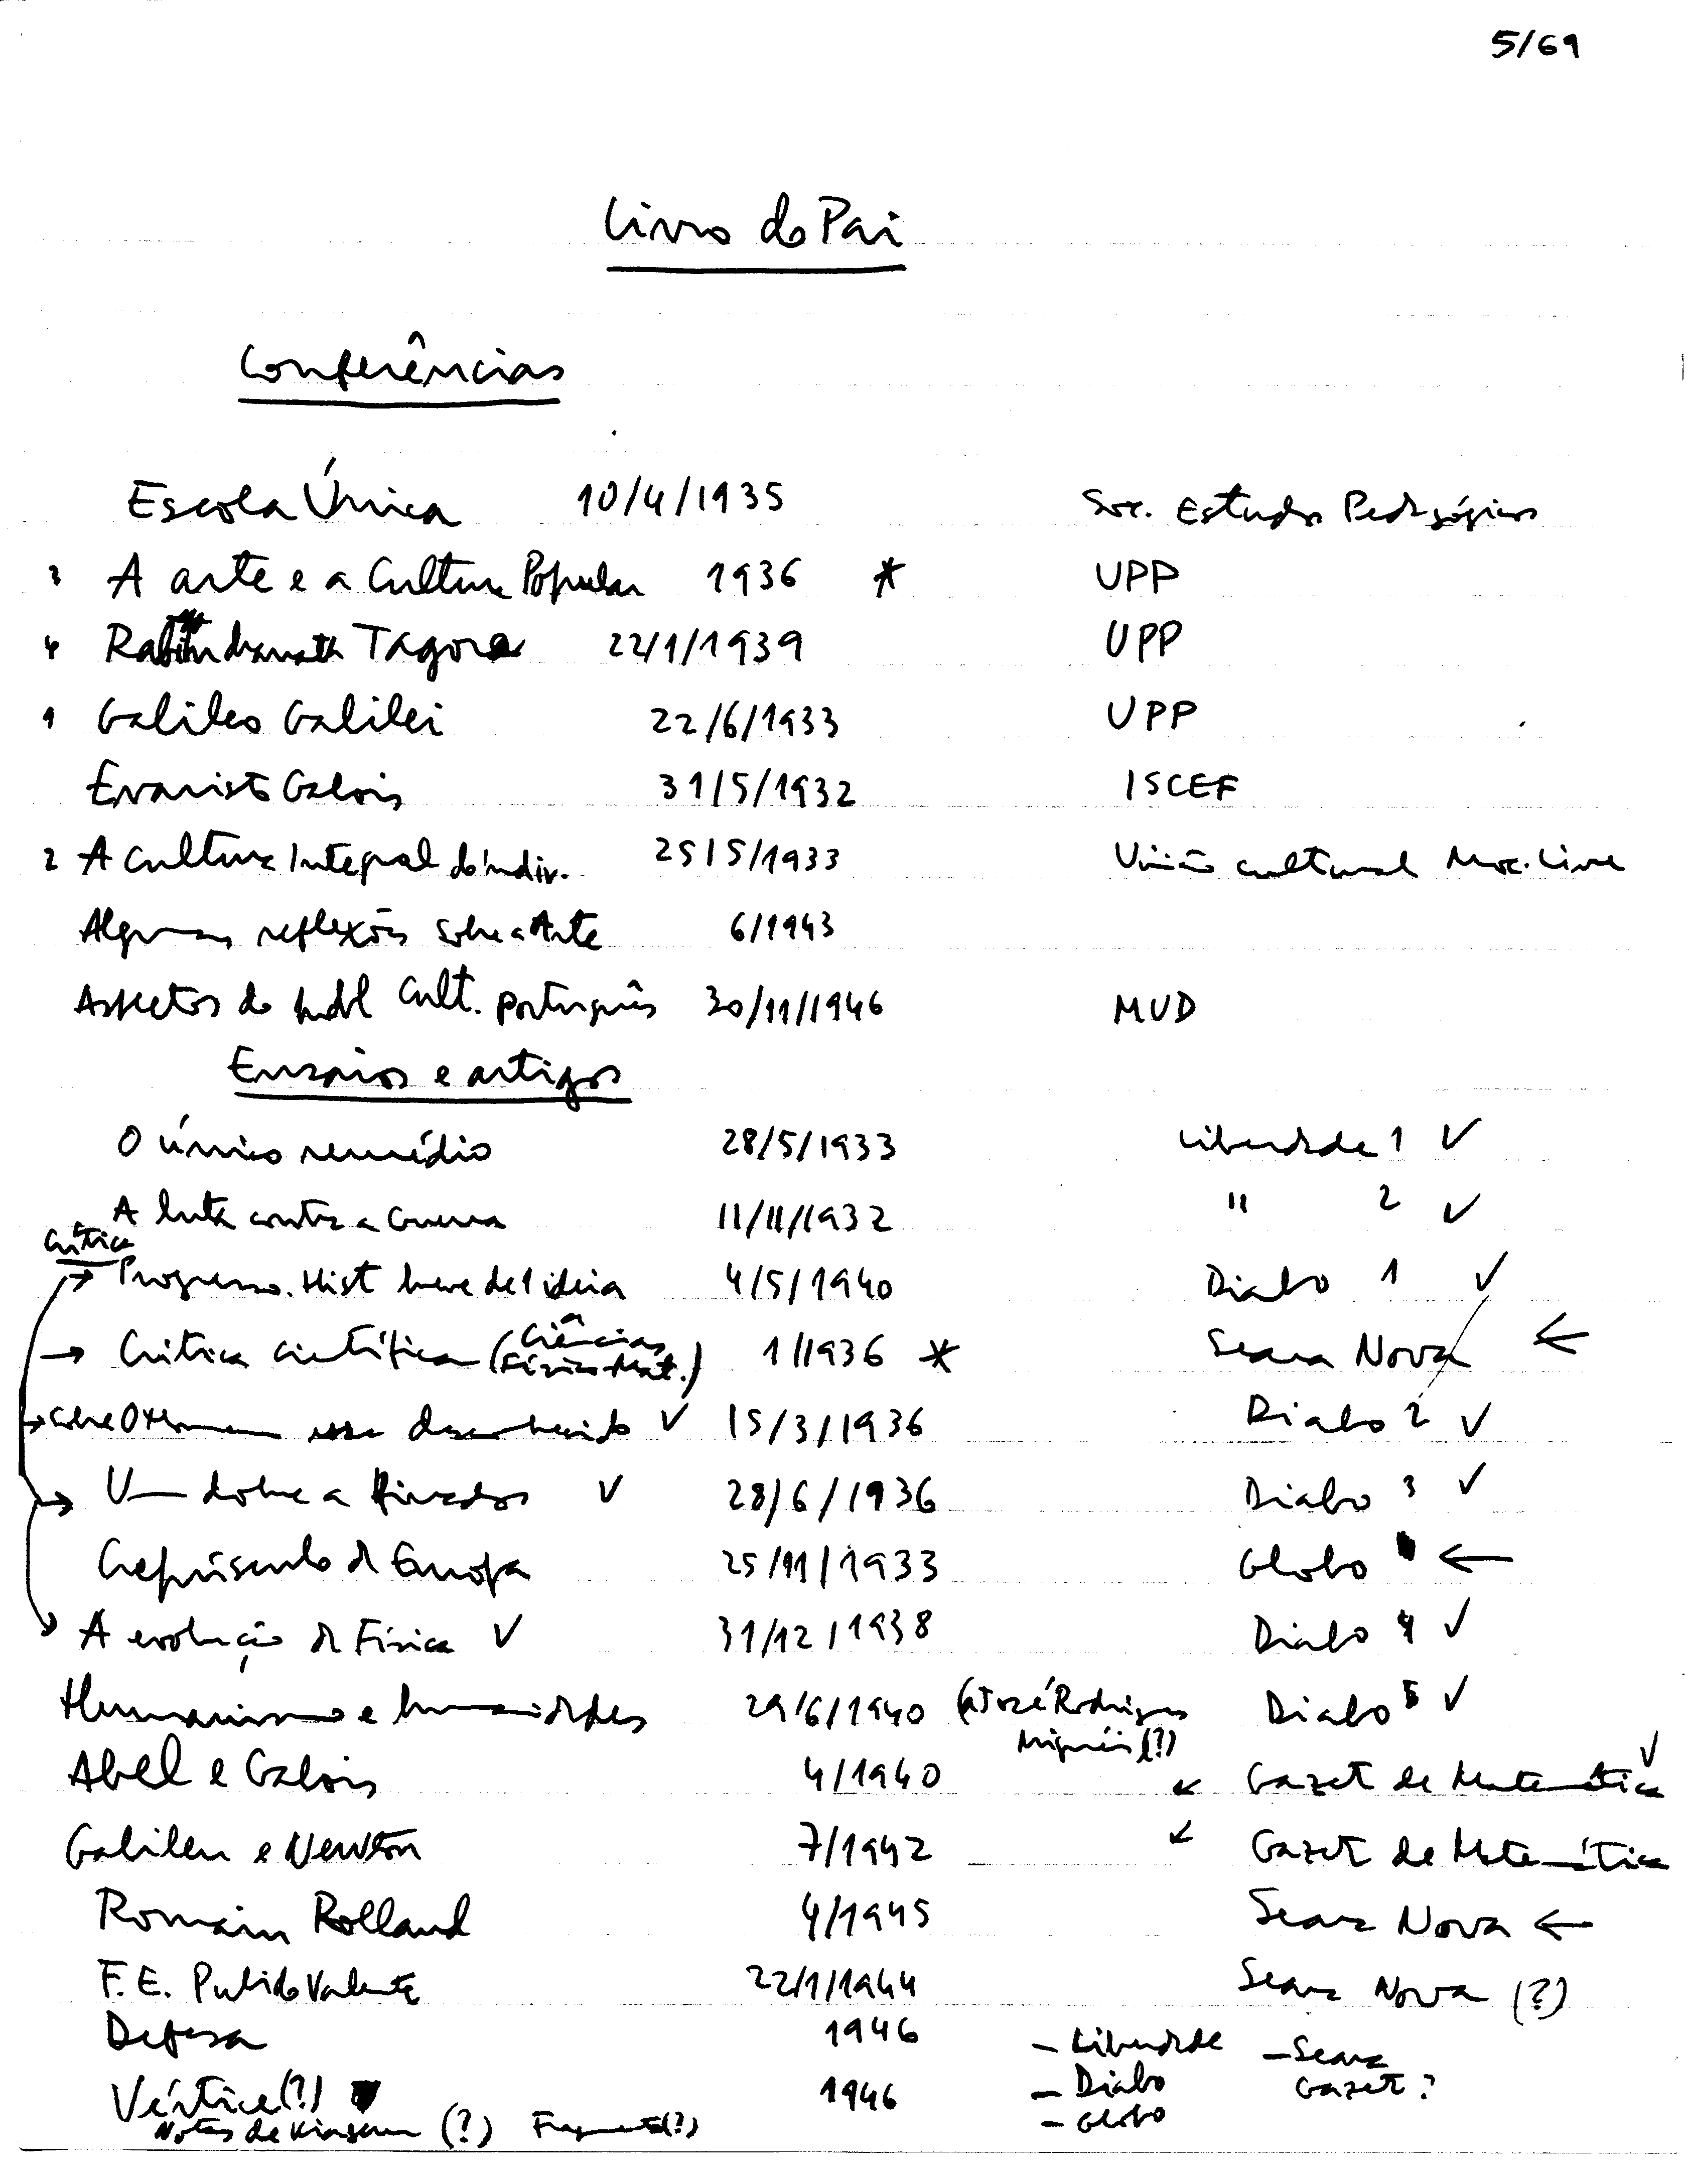 5/69
Livro do Pai
Conferências
Escola Única 10/4/1935 Soc. Estudos Pedagógicos
3 A arte e a Cultura Popular 1936 * UPP
4 Rabindranath Tagore 22/1/1939 UPP
1 Galileo Galilei 22/6/1933 UPP
Evaristo Galois 31/5/1932 ISCEF
2 A Cultura Integral do indiv. 25/5/1933 União cultural Moc. Livre
Algumas reflexões sobre a Arte 6/1943
Aspectos do probl Cult. português 30/11/1946 MUD
Ensaios e artigos
O único remédio 28/5/1933 Liberdade 1 ✓
A luta contra a Guerra 11/11/1932 " 2 ✓
Crítica
→ Progresso. Hist breve de 1 ideia 4/5/1940 Diabo 1 ✓
→ Crítica científica (Ciências Físico-Mat.) 1/1936 * Seara Nova ←
→ sobre O Homem esse desconhecido ✓ 15/3/1936 Diabo 2 ✓
→ V 28/6/1936 Diabo 3 ✓
Crepúsculo da Europa 25/11/1933 Globo ←
→ A evolução da Física ✓ 31/12/1938 Diabo 4 ✓
Humanismo e humanidades 29/6/1940 (a José Rodrigues Miguéis (?) Diabo 5 ✓
Abel e Galois 4/1940 ↙ Gazet de Matemática ✓
Galileu e Newton 7/1942 ↙ Gazet de Matemática
Romain Rolland 4/1945 Seara Nova ←
F.E. Pulido Valente 22/1/1944 Seara Nova (?)
Defesa 1946 – Liberdade – Seara
Vértice (?) 1946 – Diabo Gazet ?
Notas de Viagem (?) Fragmentos (?) – Globo